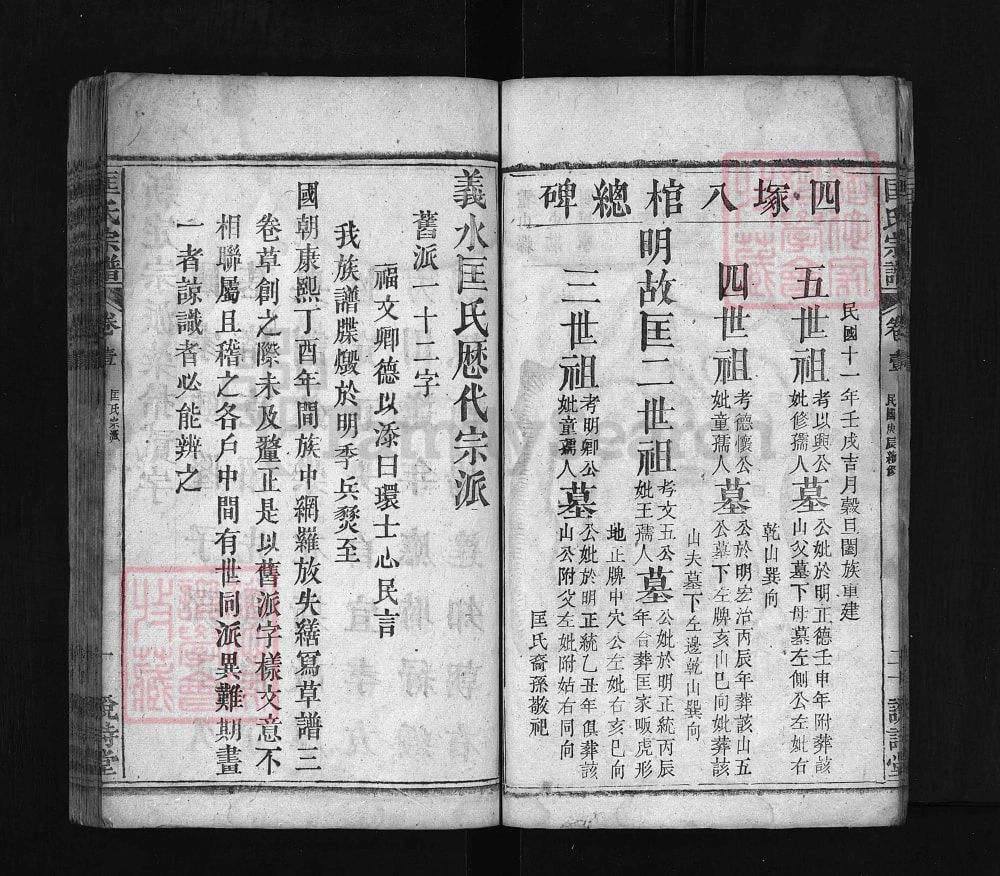 匡氏宗譜 卷壹 民國庚辰新修 說詩堂
四塚八棺總碑
民國十一年壬戌吉月穀旦闔族重建
五世祖考以與公妣修孺人墓公妣於明正德壬申年附葬該山父墓下母墓左側公左妣右
乾山巽向
四世祖考德懷公妣童孺人墓公於明宏治丙辰年葬該山五公墓下左牌亥山巳向妣葬該
山夫墓下左邊乾山巽向
明故匡二世祖考文五公妣王孺人墓公妣於明正統丙辰年合葬匡家畈虎形
地正牌中穴公左妣右亥巳向
三世祖考明卿公妣童孺人墓公妣於明正統乙丑年俱葬該山公附父左妣附姑右同向
匡氏裔孫敬祀
義水匡氏歷代宗派
舊派一十二字
福文卿德以添曰環士心民言
我族譜牒燬於明季兵燹至
國朝康熙丁酉年間族中網羅放失繕寫草譜三
卷草創之際未及釐正是以舊派字樣文意不
相聯屬且稽之各戶中間有世同派異難期畫
一者諒識者必能辨之
匡氏宗譜 卷壹 匡氏宗派 一 說詩堂